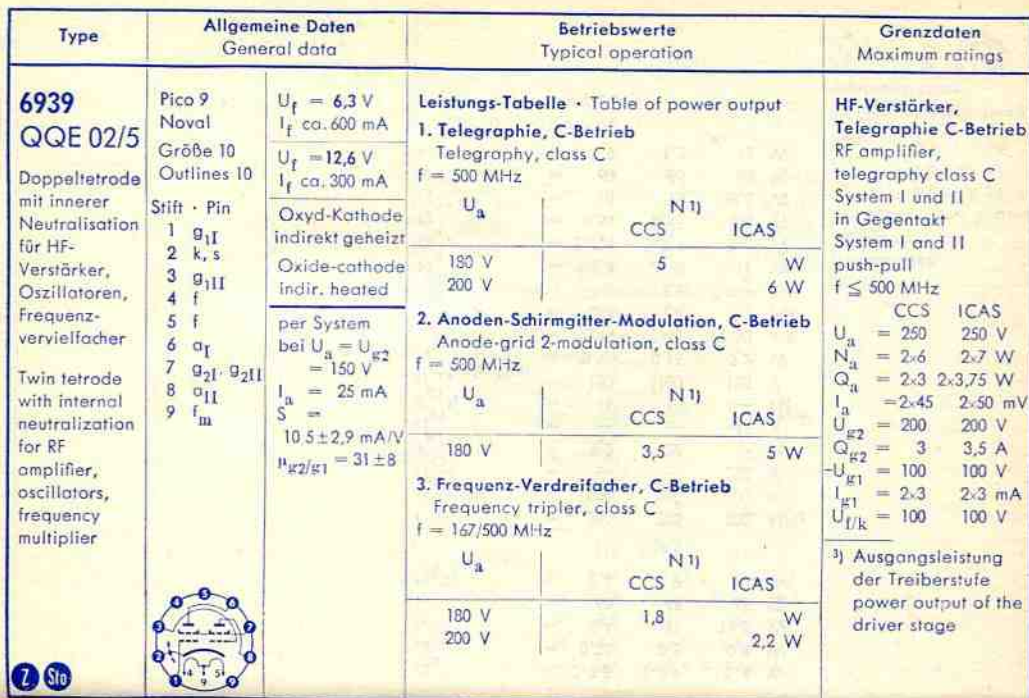 Type
Allgemeine Daten
General data
Betriebswerte
Typical operation
Grenzdaten
Maximum ratings
6939
QQE 02/5
Doppeltetrode
mit innerer
Neutralisation
für HF-
Verstärker,
Oszillatoren,
Frequenz-
vervielfacher
Twin tetrode
with internal
neutralization
for RF
amplifier,
oscillators,
frequency
multiplier
Z Sto
Pico 9
Noval
Größe 10
Outlines 10
Stift · Pin
1 g1I
2 k, s
3 g1II
4 f
5 f
6 aI
7 g2I, g2II
8 aII
9 fm
1 2 3 4 5 6 7 8 9
4 5
9
Uf = 6,3 V
If ca. 600 mA
Uf = 12,6 V
If ca. 300 mA
Oxyd-Kathode
indirekt geheizt
Oxide-cathode
indir. heated
per System
bei Ua = Ug2
= 150 V
Ia = 25 mA
S =
10.5 ± 2,9 mA/V
μg2/g1 = 31 ± 8
Leistungs-Tabelle · Table of power output
1. Telegraphie, C-Betrieb
Telegraphy, class C
f = 500 MHz
Ua N 1)
CCS ICAS
180 V 5 W
200 V 6 W
2. Anoden-Schirmgitter-Modulation, C-Betrieb
Anode-grid 2-modulation, class C
f = 500 MHz
Ua N 1)
CCS ICAS
180 V 3,5 5 W
3. Frequenz-Verdreifacher, C-Betrieb
Frequency tripler, class C
f = 167/500 MHz
Ua N 1)
CCS ICAS
180 V 1,8 W
200 V 2,2 W
HF-Verstärker,
Telegraphie C-Betrieb
RF amplifier,
telegraphy class C
System I und II
in Gegentakt
System I and II
push-pull
f ≦ 500 MHz
CCS ICAS
Ua = 250 250 V
Na = 2×6 2×7 W
Qa = 2×3 2×3,75 W
Ia = 2×45 2×50 mV
Ug2 = 200 200 V
Qg2 = 3 3,5 A
-Ug1 = 100 100 V
Ig1 = 2×3 2×3 mA
Uf/k = 100 100 V
3) Ausgangsleistung
der Treiberstufe
power output of the
driver stage